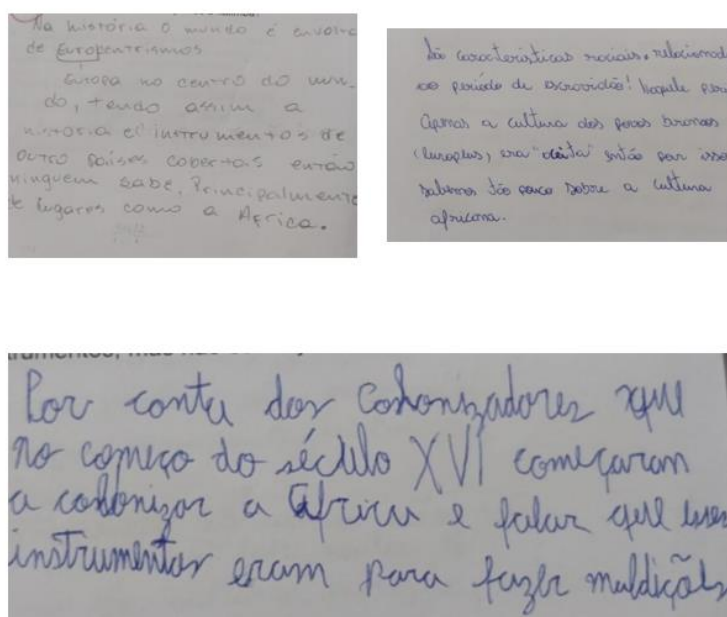 Na história o mundo é envolv
de Europentrismos
Europa no centro do mun-
do, tendo assim a
história e instrumentos de
outro paises cobertos então
ninguem sabe, Principalmente
de lugares como a Africa.
São caracteristicas raciais, relacionad
ao periodo de escravidão! Naquele peri
Apenas a cultura dos povos brancos
(Europeus, era "aceita" então por isso
sabemos tão pouco sobre a cultura
africana.
Por conta dos colonizadores que
no começo do século XVI começaram
a colonizar a Africa e falar que esses
instrumentos eram para fazer maldições